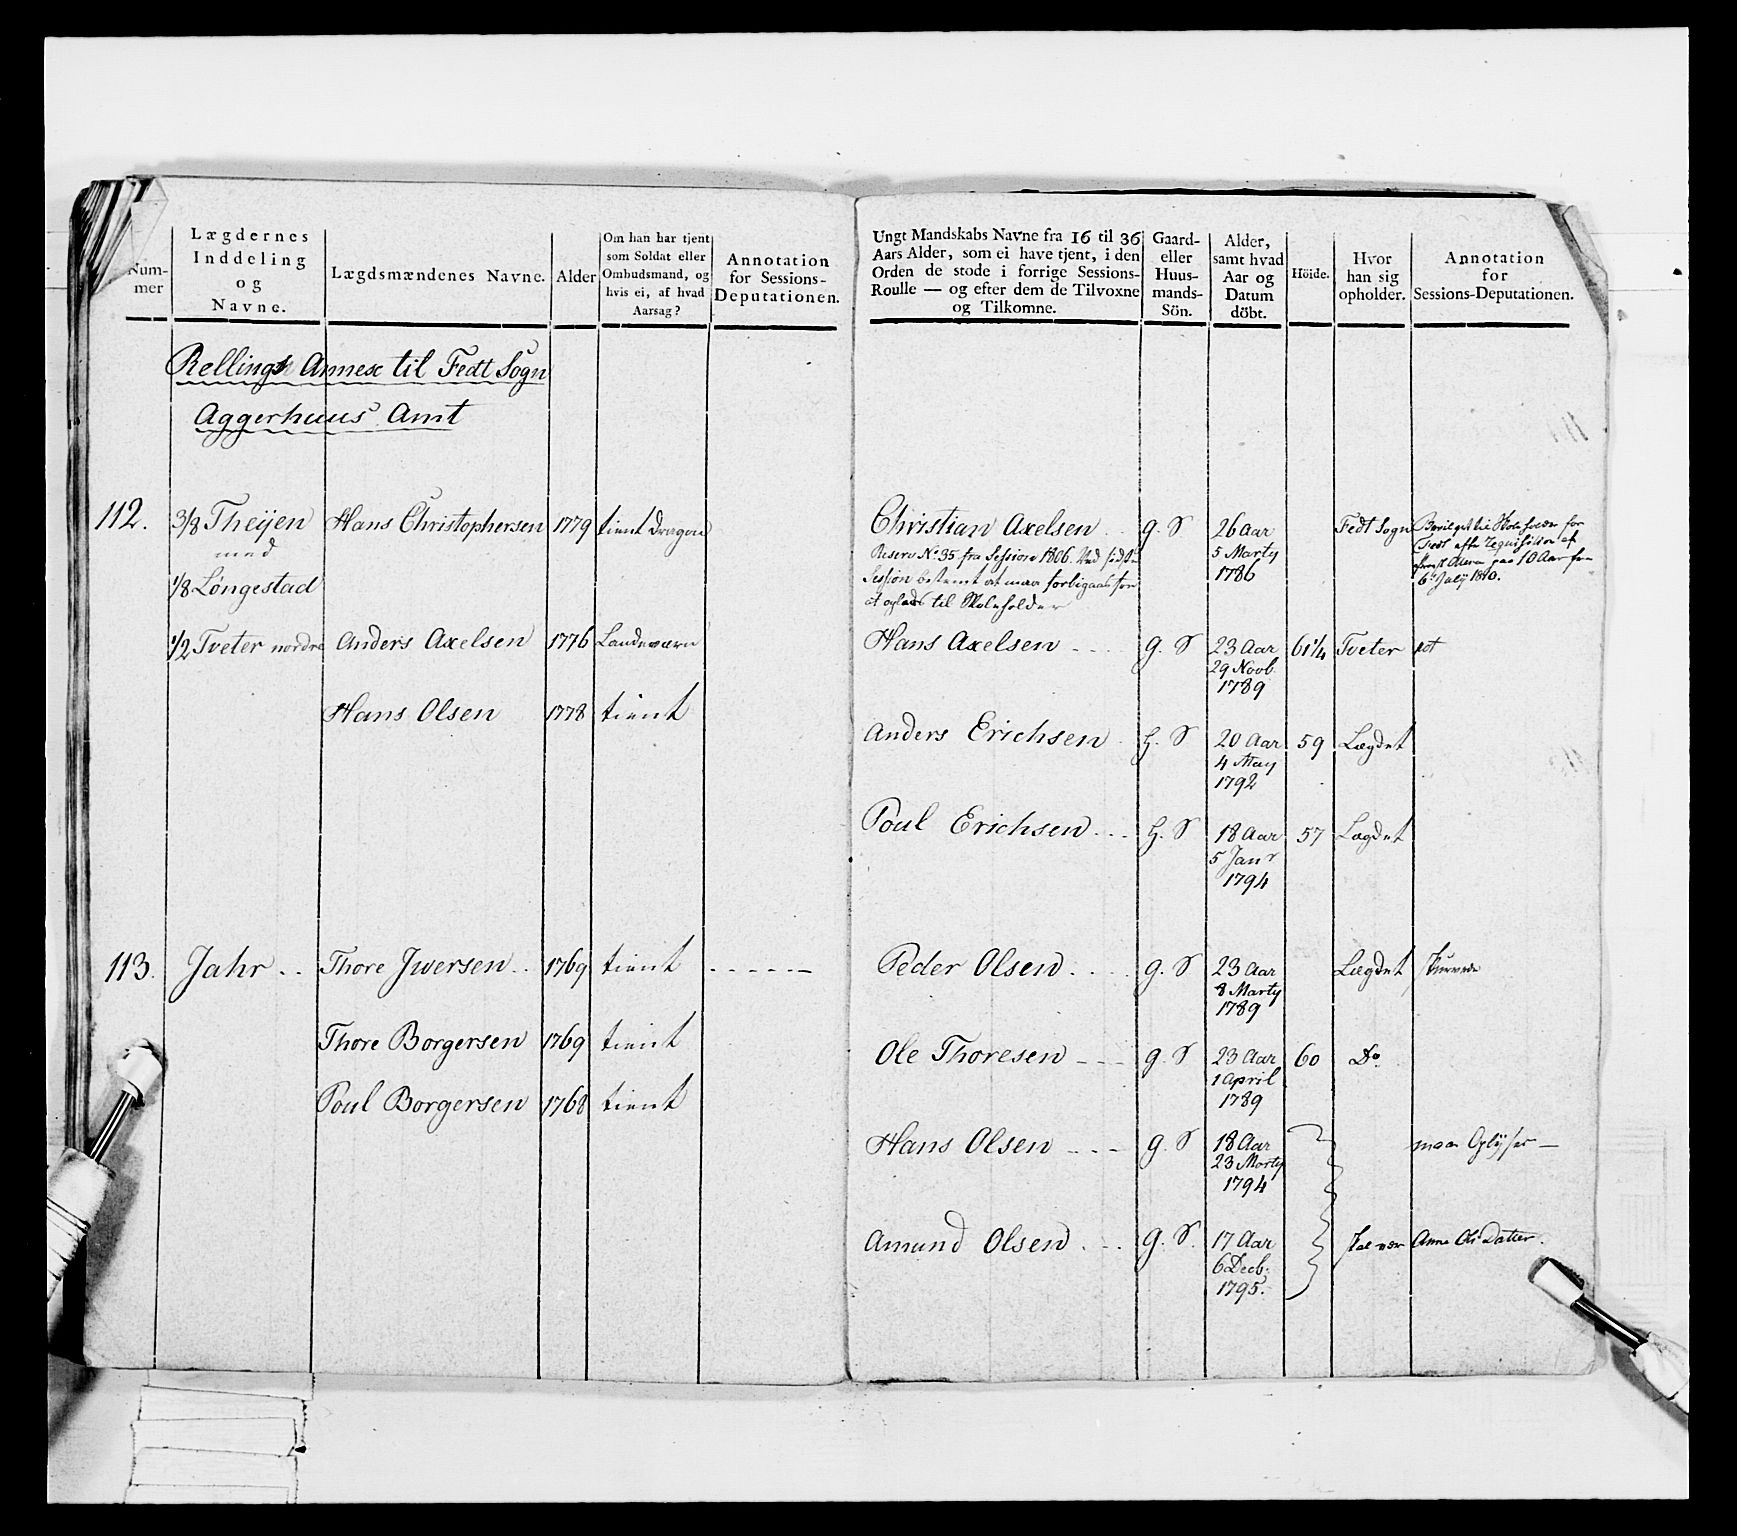 Num-
mer
Lægdernes
Inddeling
og
Navne.
Lægdsmændenes Navne.
Alder
Om han har tjent
som Soldat eller
Ombudsmand, og
hvis ei, af hvad
Aarsag?
Annotation
for Sessions-
Deputationen.
Rellings Annex til Fedt Sogn
Aggerhuus Amt
112.
3/8 Theijen
med
1/8 Löngestad
Hans Christophersen
1779
tient Dragon
1/2 Tveter nordre
Anders Axelsen
1776
Landeværn
Hans Olsen
1778
tient
113.
Jahr
Thore Jwersen
1769
tient
Thore Borgersen
1769
tient
Poul Borgersen
1768
tient
Ungt Mandskabs Navne fra 16 til 36
Aars Alder, som ei have tjent, i den
Orden de stode i forrige Sessions-
Roulle — og efter dem de Tilvoxne
og Tilkomne.
Gaard-
eller
Huus-
mands-
Sön.
Alder,
samt hvad
Aar og
Datum
döbt.
Höide.
Hvor
han sig
opholder.
Annotation
for
Sessions-Deputationen.
Christian Axelsen
g. S
26 Aar
5 Marty
1786
Fedt Sogn
Reserv No. 35 fra Session 1806. Ved sidste
Session bestemt at maa forbigaas for
at oplæres til Skoleholder
Bevilget til Skoleholder for
Fedt efter Requisition af
paa 10 Aar fra
6te July 1810.
Hans Axelsen
g. S
23 Aar
29 Novb.
1789
61 1/4
Tveter
Anders Erichsen
H. S
20 Aar
4 May
1792
59
Lægdet
Poul Erichsen
H. S
18 Aar
5 Janr
1794
57
Lægdet
Peder Olsen
g. S
23 Aar
8 Marty
1789
Lægdet
Ole Thoresen
g. S
23 Aar
1 April
1789
60
Do.
Hans Olsen
g. S
18 Aar
23 Marty
1794
maa Oplyses —
Amund Olsen
g. S.
17 Aar
6 Decb.
1795.
skal være Anne Ols Datter.